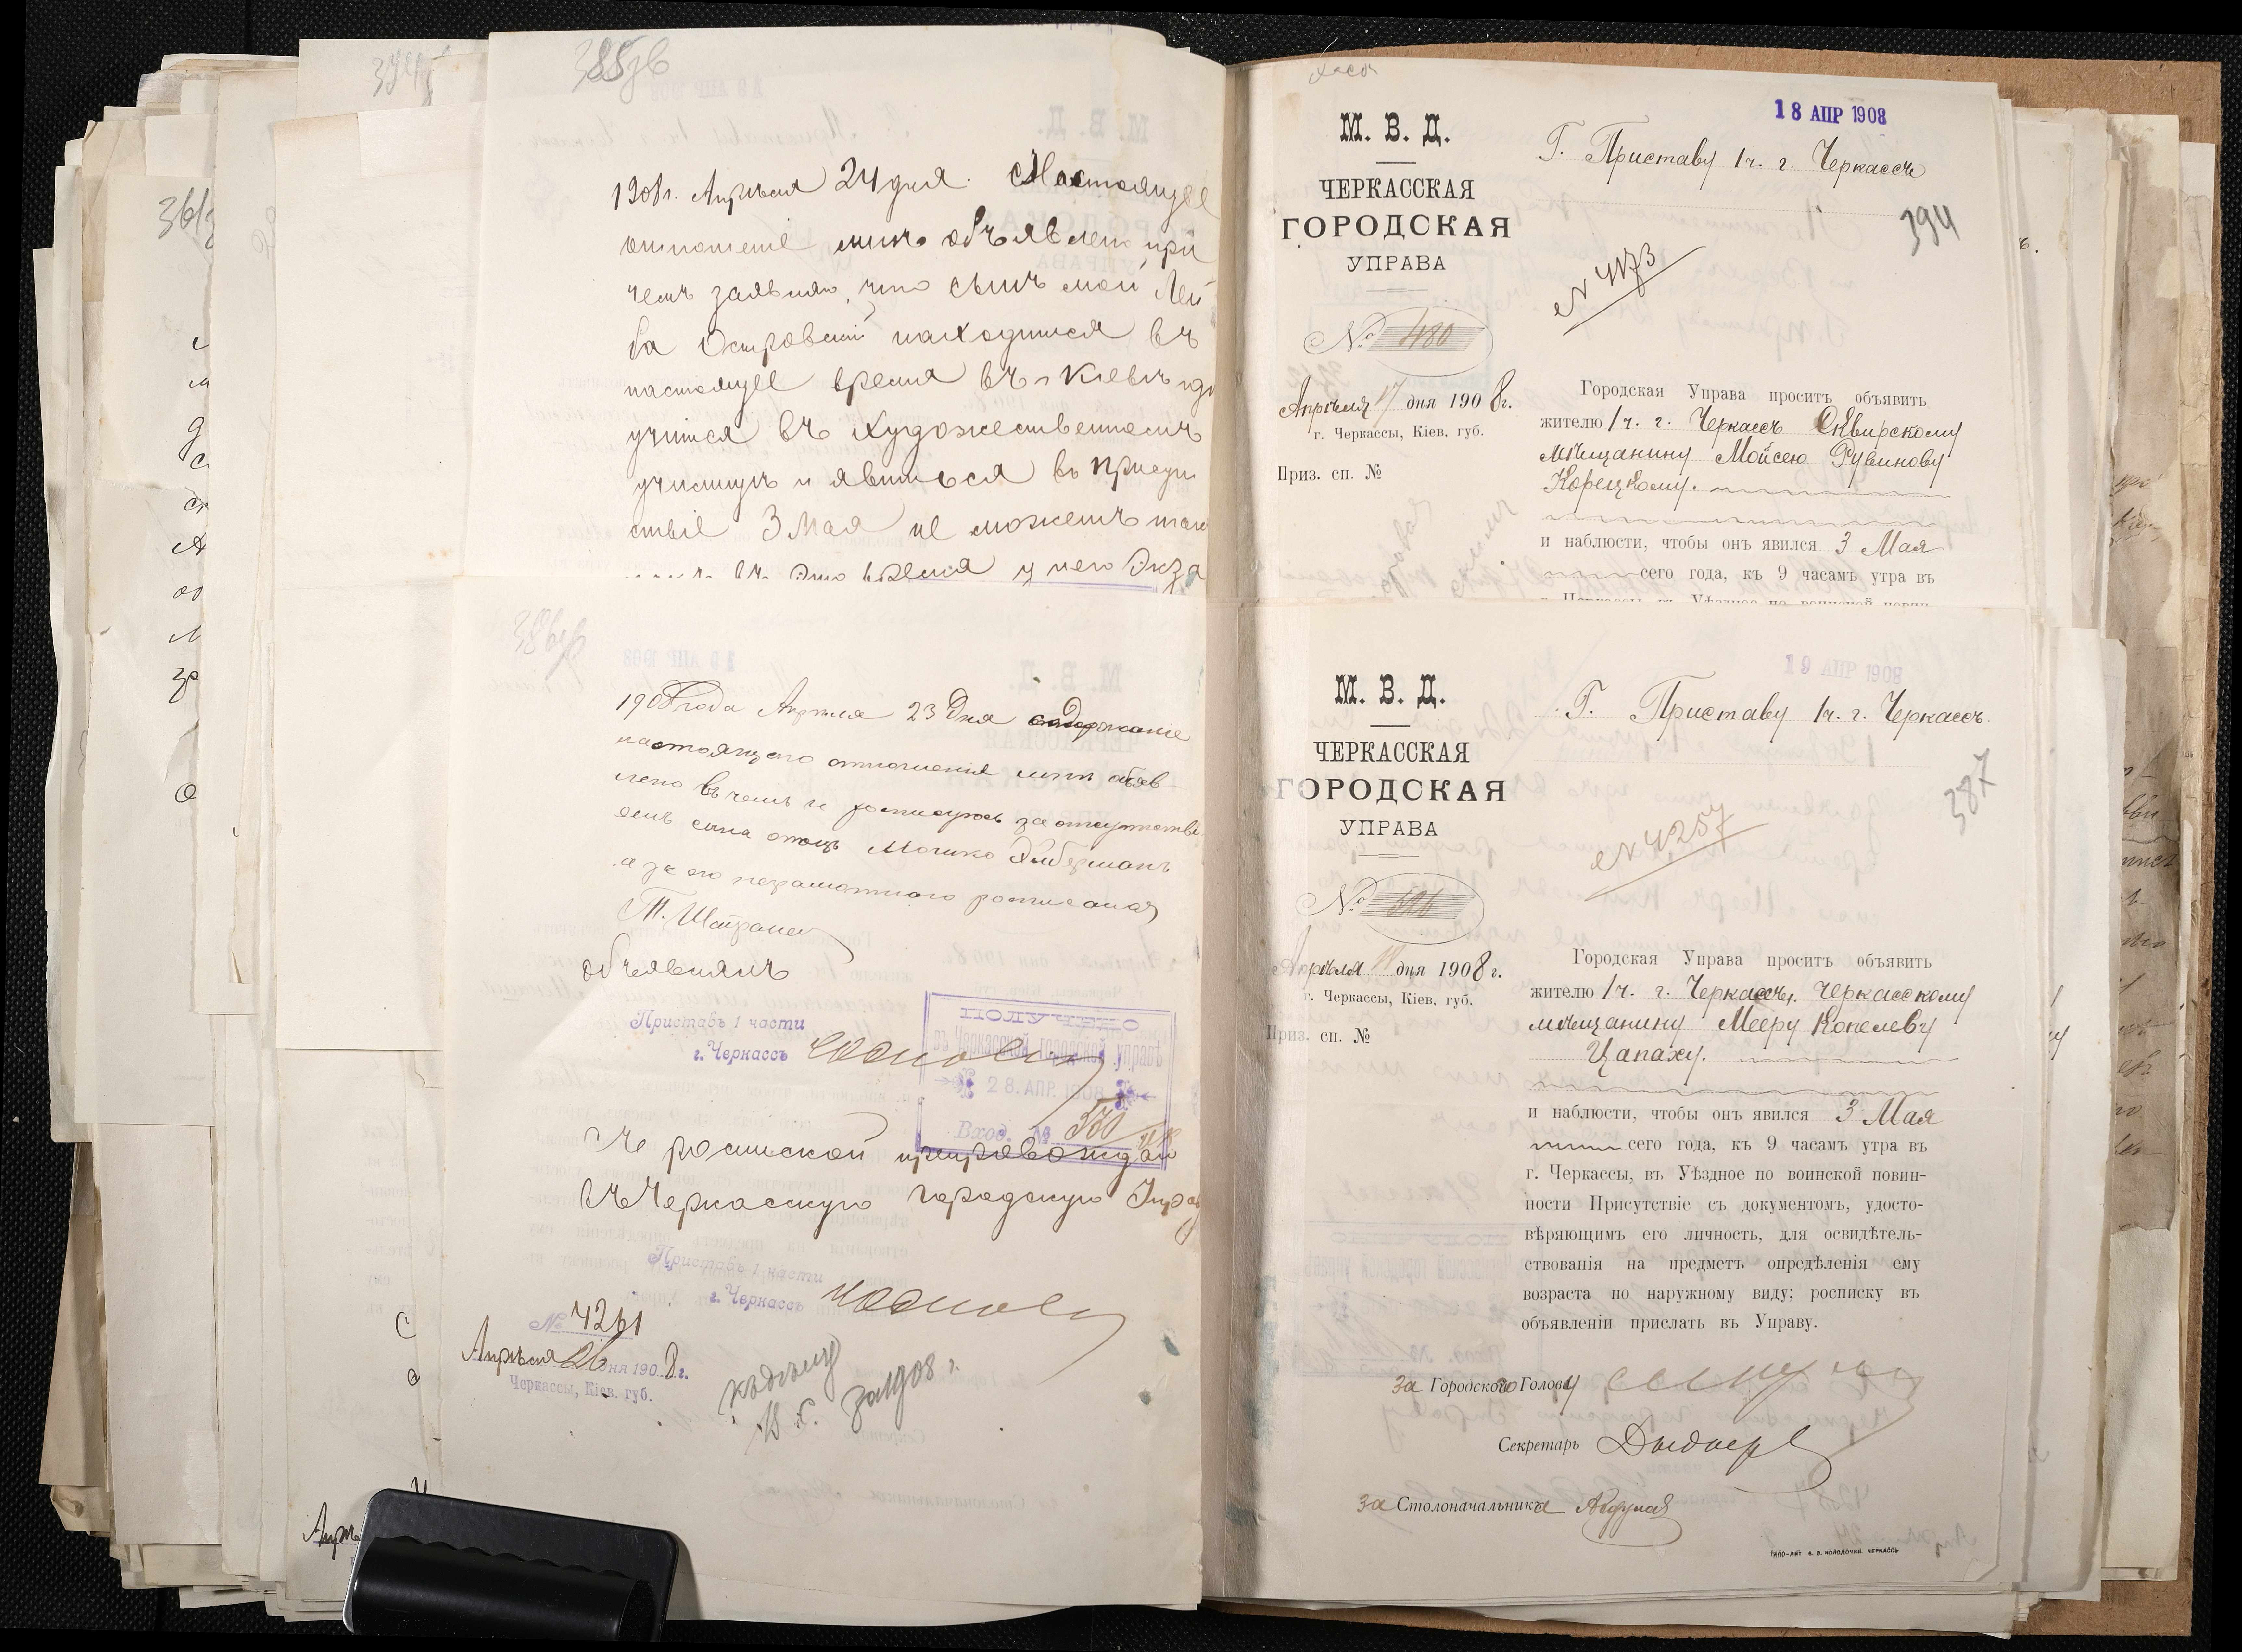 385
1908г. Апреля 24 дня. Настоящее
отношение мне объявлено, при
чемъ заявляю, что сынъ мой Лей
ба Островский находится въ
настоящее время въ г. Киевѣ, где
учится въ Художественномъ
училищѣ и явиться въ присут
ствіе 3 Мая не можетъ так
въ это время у него Экза
386
1908 года Апреля 23 дня содержание
настоящего отношения мнѣ объяв-
лено въ чемъ и росписуюсь за отсутстві
емъ сына отецъ Мошко
а за его неграмотного росписался
объявилъ
Приставъ 1 части
г. Черкассъ
ПОЛУЧЕНО
въ Черкасской городской управѣ
28. АПР. 1908
Вход. № 530
Съ роспиской препровождаю
въ Черкасскую городскую Управ
Приставъ 1 части
г. Черкассъ
№ 4261
Апреля 26 дня 1908 г.
Черкассы, Кіев. губ.
къ дѣлу
1908 г.
18 АПР 1908
М. В. Д.
ЧЕРКАССКАЯ
ГОРОДСКАЯ
УПРАВА
Г. Приставу 1ч. г. Черкассъ
394
№ 4173
№ 480
Апрѣля 17 дня 1908 г.
г. Черкассы, Кіев. губ.
Приз. сп. №
Городская Управа проситъ объявить
жителю 1ч. г. Черкассъ Сквирскому
мѣщанину Мойсею Рувинову
Корецкому.
и наблюсти, чтобы онъ явился 3 Мая
сего года, къ 9 часамъ утра въ
г. Черкассы, въ Уѣздное по воинской повин-
19 АПР 1908
М. В. Д.
ЧЕРКАССКАЯ
ГОРОДСКАЯ
УПРАВА
Г. Приставу 1ч. г. Черкассъ.
387
№ 4257
№ 506
Апрѣля дня 1908 г.
г. Черкассы, Кіев. губ.
Приз. сп. №
Городская Управа проситъ объявить
жителю 1ч. г. Черкассъ, черкасскому
мѣщанину Мееру Копелеву
Цапаху.
и наблюсти, чтобы онъ явился 3 Мая
сего года, къ 9 часамъ утра въ
г. Черкассы, въ Уѣздное по воинской повин-
ности Присутствіе съ документомъ, удосто-
вѣряющимъ его личность, для освидѣтель-
ствованія на предметъ опредѣленія ему
возраста по наружному виду; росписку въ
объявленіи прислать въ Управу.
За Городского Голову
Секретарь
За Столоначальника